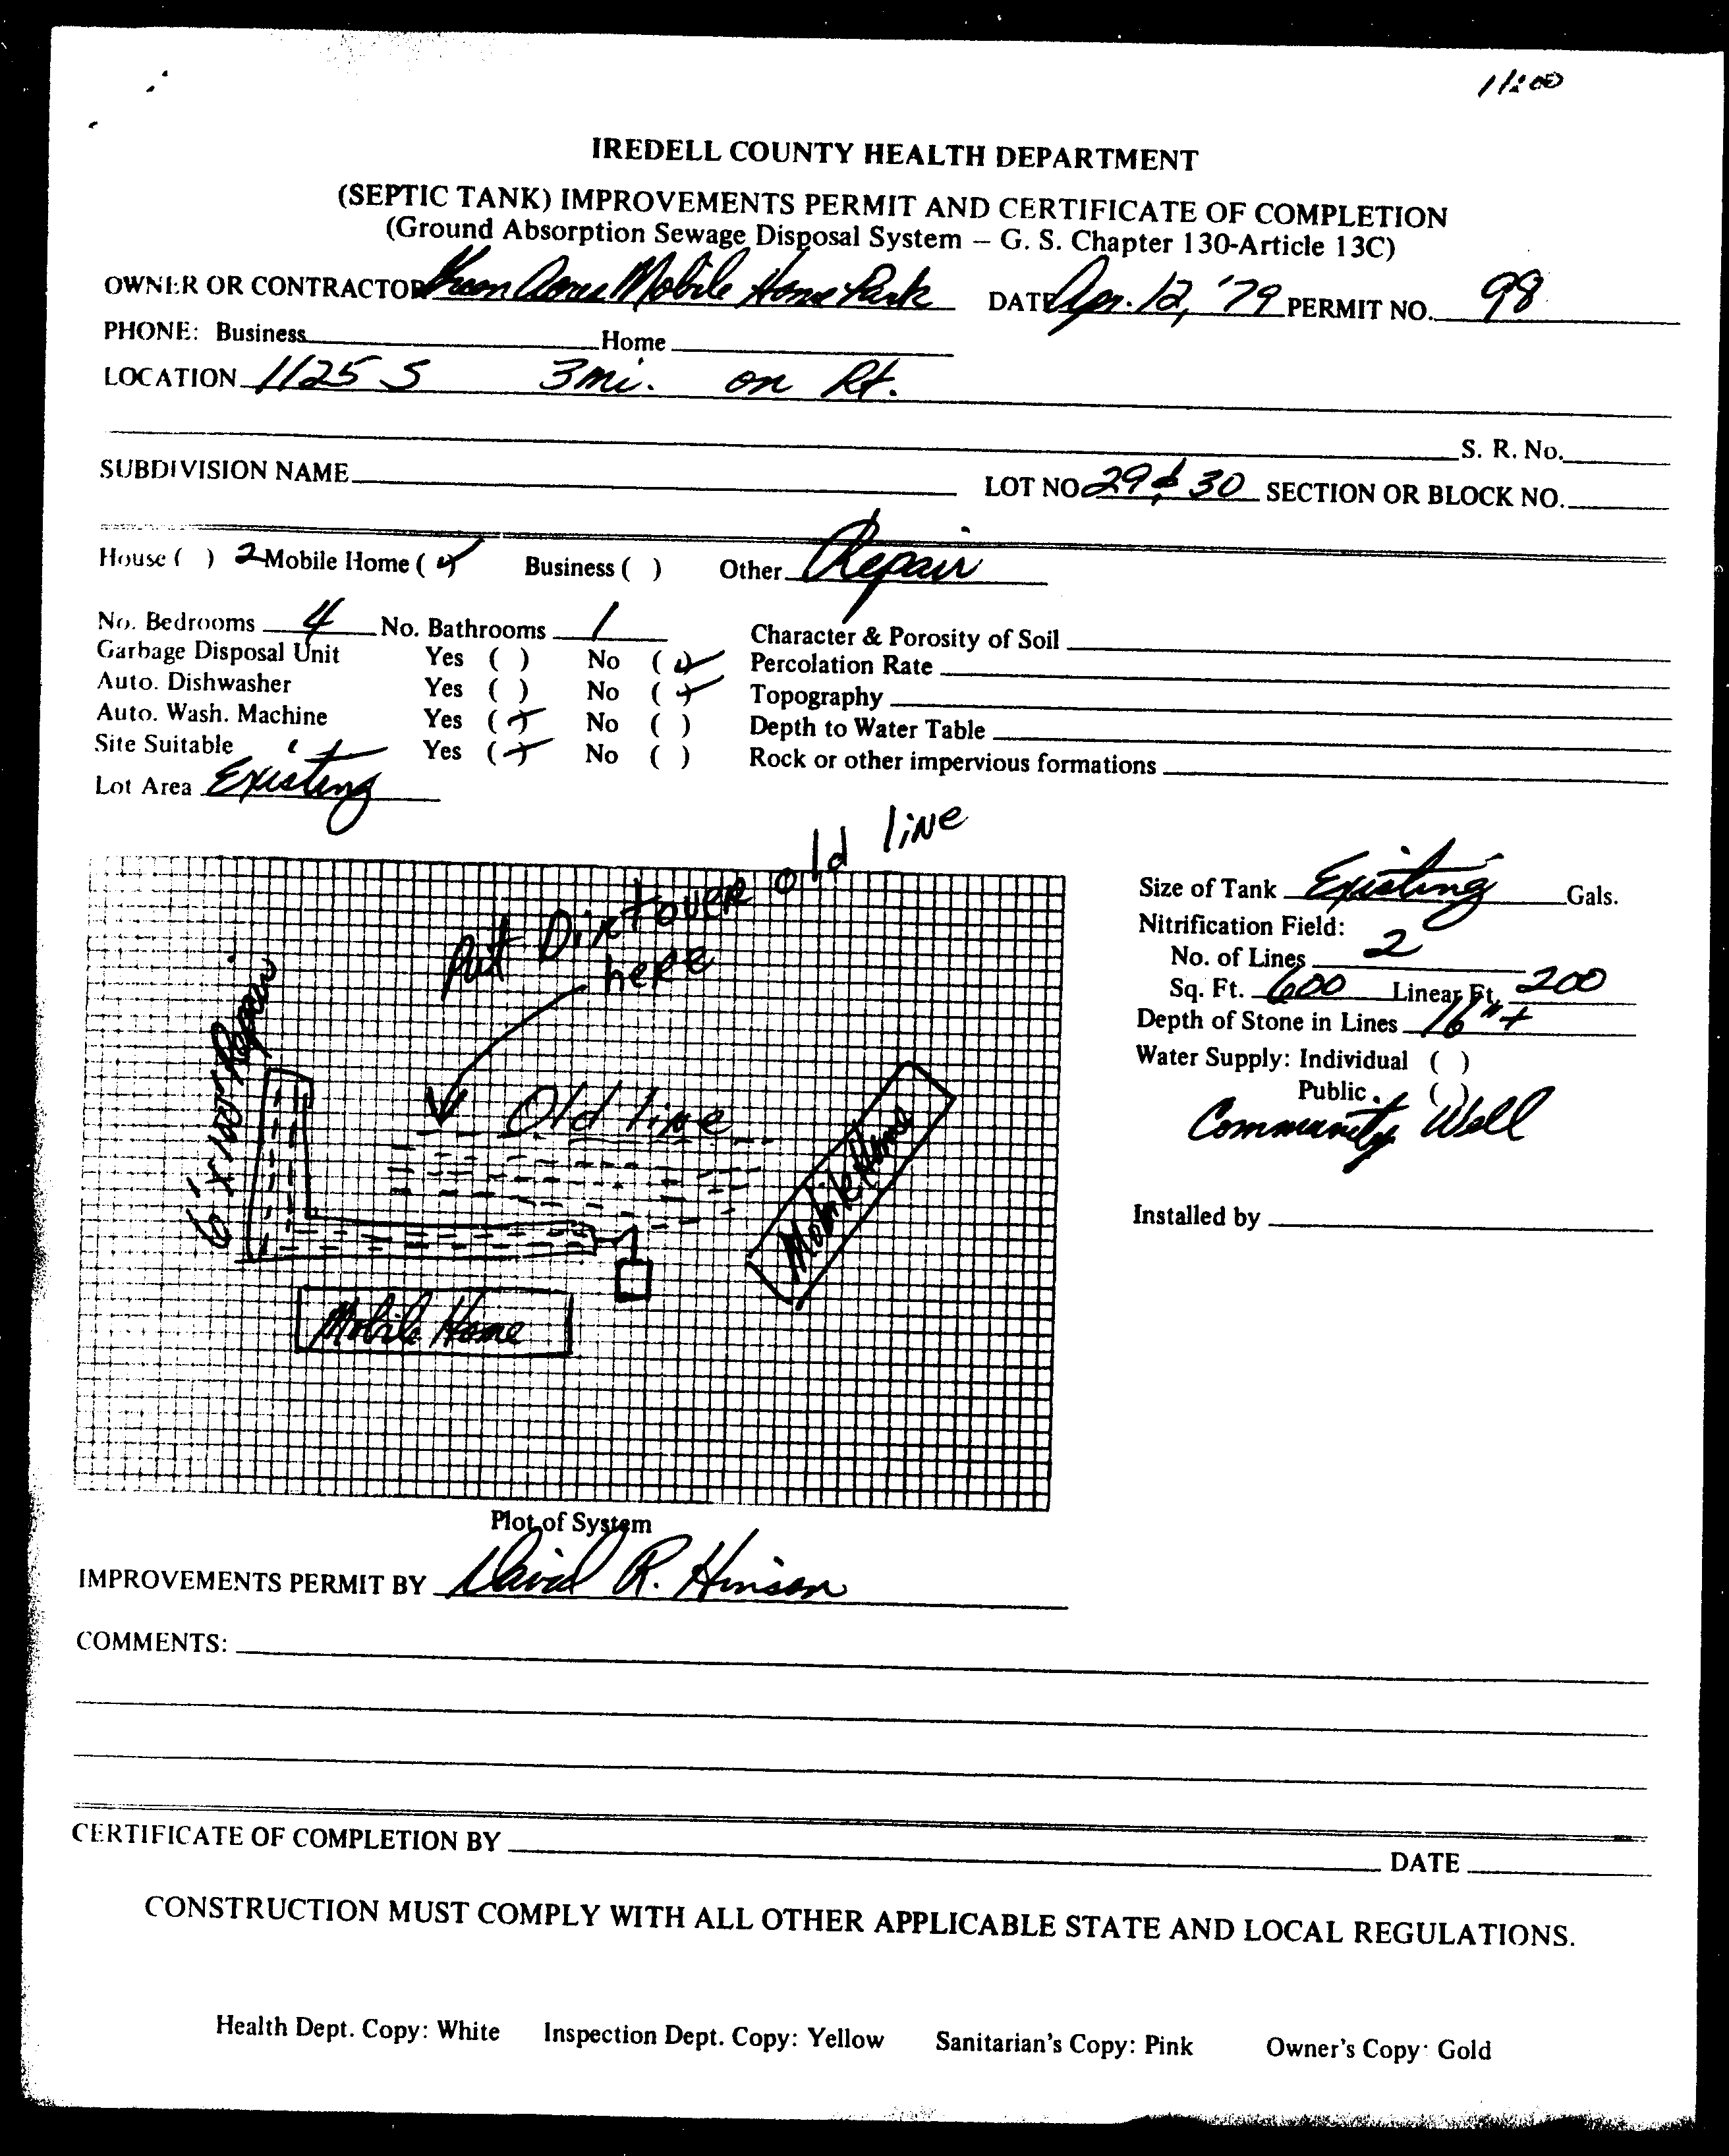 11:00
IREDELL COUNTY HEALTH DEPARTMENT
(SEPTIC TANK) IMPROVEMENTS PERMIT AND CERTIFICATE OF COMPLETION
(Ground Absorption Sewage Disposal System – G. S. Chapter 130-Article 13C)
OWNER OR CONTRACTOR Green Acres Mobile Home Park DATE Apr. 12, '79 PERMIT NO. 98
PHONE: Business Home
LOCATION 1125 S 3 mi. on Rt.
S. R. No.
SUBDIVISION NAME LOT NO 29 & 30 SECTION OR BLOCK NO.
House ( ) 2 Mobile Home (✓) Business ( ) Other Repair
No. Bedrooms 4 No. Bathrooms 1 Character & Porosity of Soil
Garbage Disposal Unit Yes ( ) No (✓) Percolation Rate
Auto. Dishwasher Yes ( ) No (✓) Topography
Auto. Wash. Machine Yes (✓) No ( ) Depth to Water Table
Site Suitable Yes (✓) No ( ) Rock or other impervious formations
Lot Area Existing
Put Dirt over old line
here
6' x 100' Repair
Old line
Mobile Home
Mobile Home
Size of Tank Existing Gals.
Nitrification Field:
No. of Lines 2
Sq. Ft. 600 Linear Ft. 200
Depth of Stone in Lines 16"+
Water Supply: Individual ( )
Public ( )
Community Well
Installed by
Plot of System
IMPROVEMENTS PERMIT BY David R. Hinson
COMMENTS:
CERTIFICATE OF COMPLETION BY DATE
CONSTRUCTION MUST COMPLY WITH ALL OTHER APPLICABLE STATE AND LOCAL REGULATIONS.
Health Dept. Copy: White Inspection Dept. Copy: Yellow Sanitarian's Copy: Pink Owner's Copy: Gold